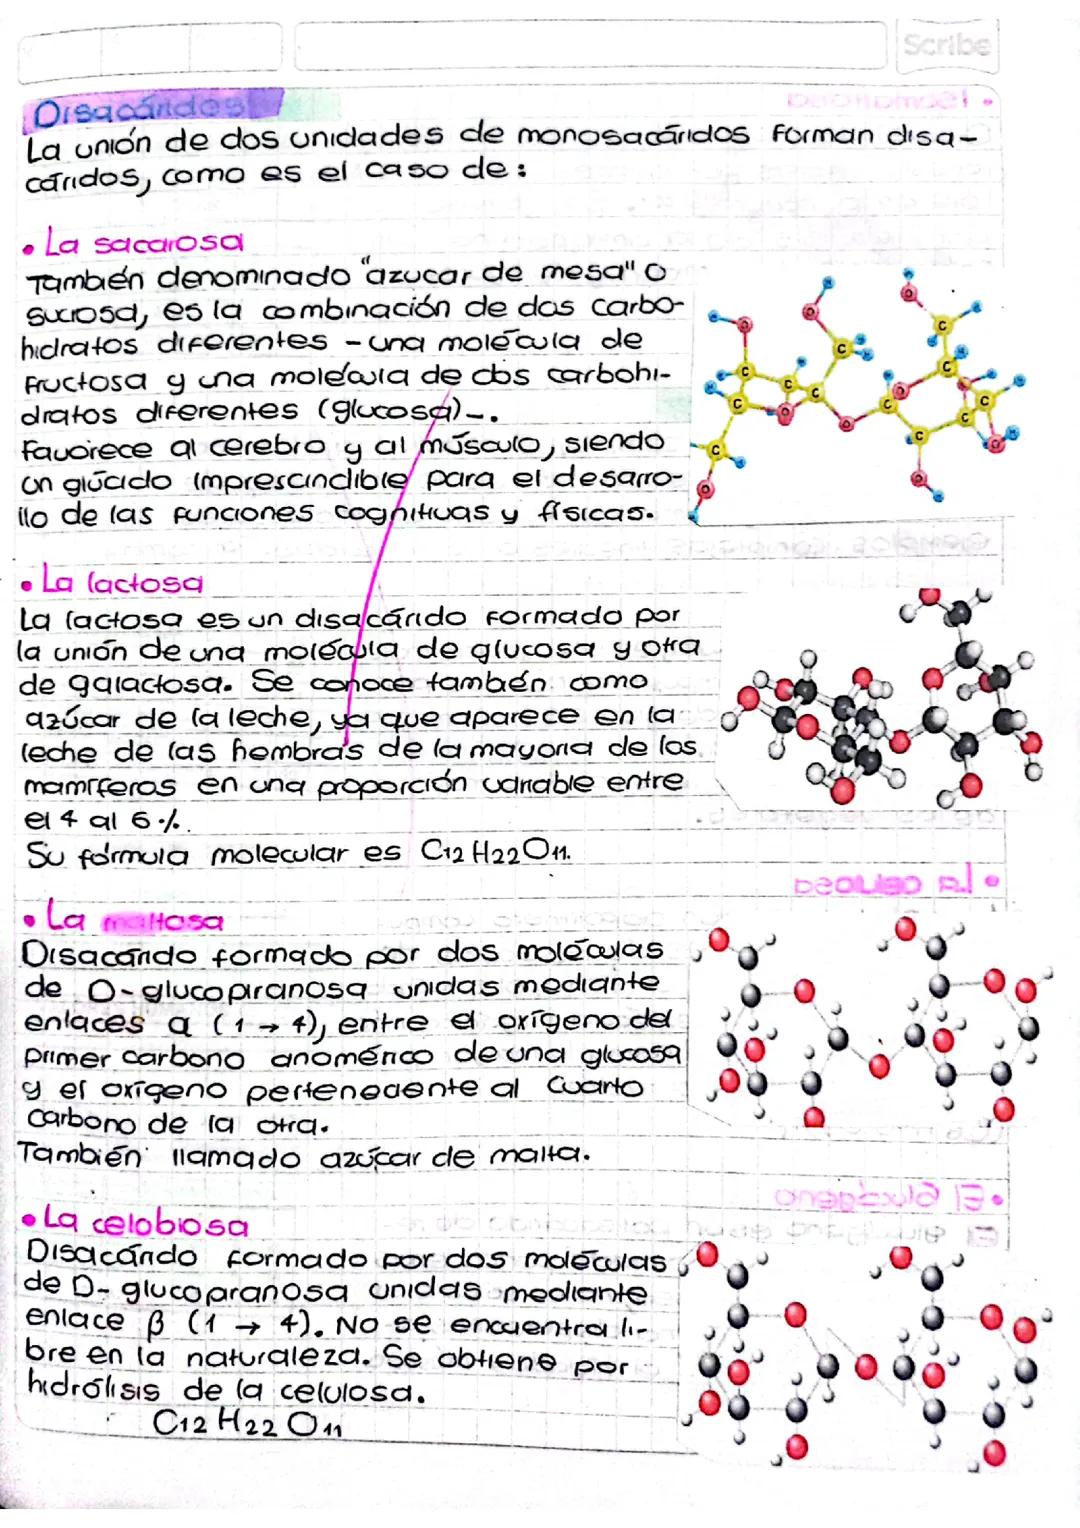 Scribe
Disacáridos
La unión de dos unidades de monosacáridos forman disa-
cáridos, como es el caso de:
• La sacarosa
También denominado "azucar de mesa" o
sucrosa, es la combinación de dos carbo-
hidratos diferentes - una molécula de
fructosa y una molécula de dos carbohi-
dratos diferentes (glucosa)-.
Favorece al cerebro y al músculo, siendo
un glúcido imprescindible para el desarro-
llo de las funciones cognitivas y físicas.
• La lactosa
La lactosa es un disacárido formado por
la unión de una molécula de glucosa y otra
de galactosa. Se conoce también como
azúcar de la leche, ya que aparece en la
leche de las hembras de la mayoria de los
mamíferos en una proporción variable entre
el 4 al 6 %.
Su fórmula molecular es C12 H22 O11.
• La maltosa
Disacárido formado por dos moléculas
de D-glucopiranosa unidas mediante
enlaces α (1 → 4), entre el oxígeno del
primer carbono anomérico de una glucosa
y el oxígeno perteneciente al cuarto
carbono de la otra.
También llamado azúcar de malta.
• La celobiosa
Disacárido formado por dos moléculas
de D- glucopiranosa unidas mediante
enlace β (1 → 4). No se encuentra li-
bre en la naturaleza. Se obtiene por
hidrólisis de la celulosa.
C12 H22 O11